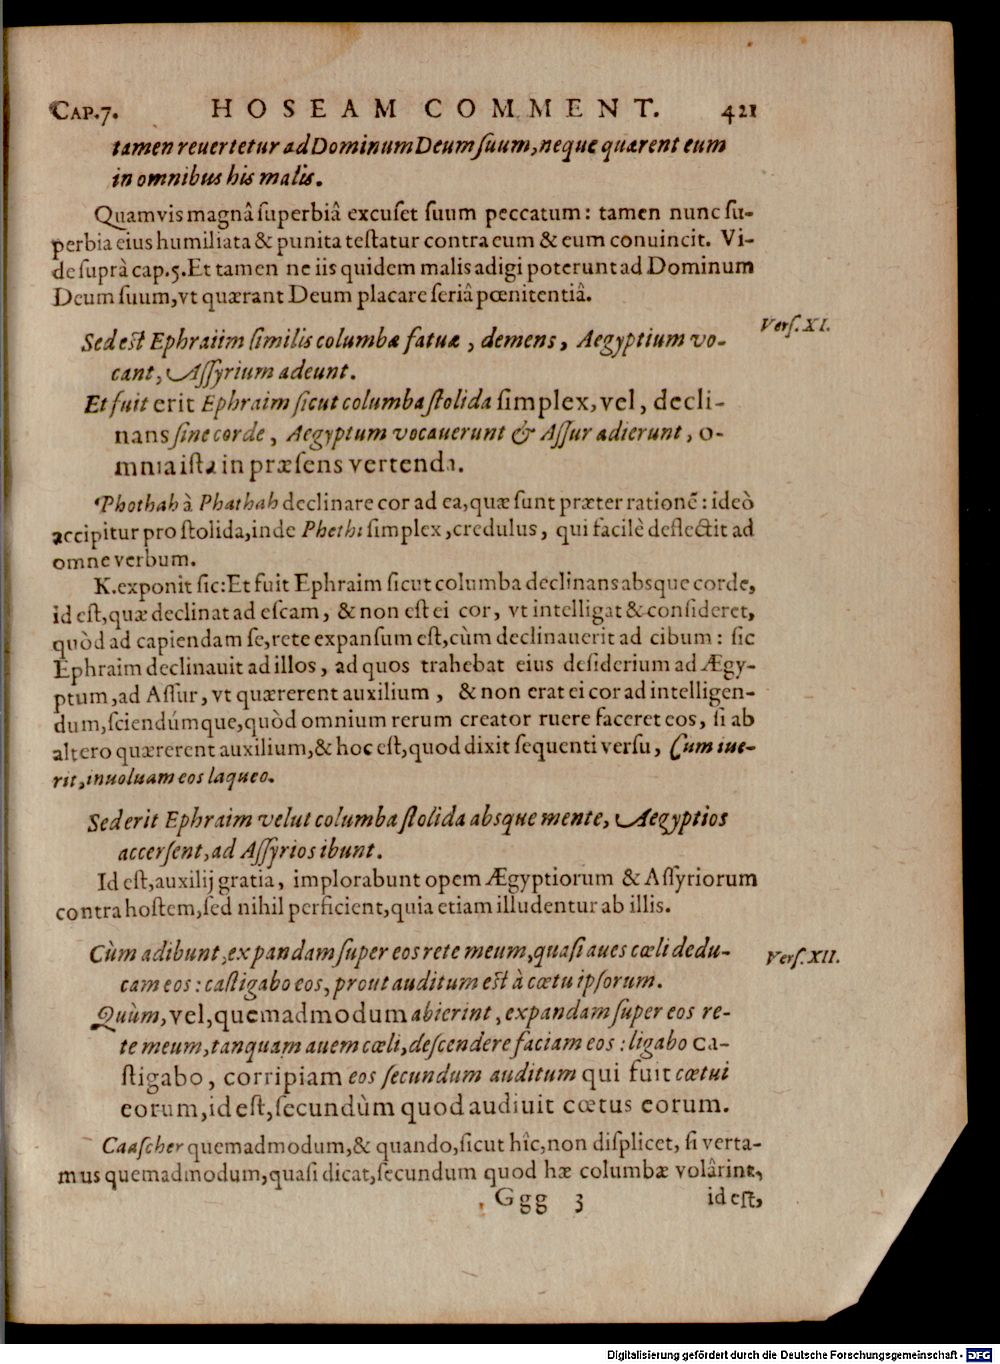 CAP.7. HOSEAM COMMENT. 421
tamen reuertetur ad Dominum Deum ſuum, neque quærent eum
in omnibus his malis.
Quamvis magnâ ſuperbiâ excuſet ſuum peccatum: tamen nunc ſu-
perbia eius humiliata & punita teſtatur contra eum & eum conuincit. Vi-
de ſuprà cap.5. Et tamen ne iis quidem malis adigi poterunt ad Dominum
Deum ſuum, vt quærant Deum placare ſeriâ pœnitentiâ.
Verſ. XI.
Sed est Ephraiim ſimilis columbæ fatuæ, demens, Aegyptium vo-
cant, Aſſyrium adeunt.
Et fuit erit Ephraim ſicut columba ſtolida ſimplex, vel, decli-
nans ſine corde, Aegyptum vocauerunt & Aſſur adierunt, o-
mnia iſta in præſens vertenda.
Phothah à Phathah declinare cor ad ea, quæ ſunt præter rationē: ideò
accipitur pro ſtolida, inde Phethi ſimplex, credulus, qui facilè deflectit ad
omne verbum.
K. exponit ſic: Et fuit Ephraim ſicut columba declinans absque corde,
id eſt, quæ declinat ad eſcam, & non eſt ei cor, vt intelligat & conſideret,
quòd ad capiendam ſe, rete expanſum eſt, cùm declinauerit ad cibum: ſic
Ephraim declinauit ad illos, ad quos trahebat eius deſiderium ad Ægy-
ptum, ad Aſſur, vt quærerent auxilium, & non erat ei cor ad intelligen-
dum, ſciendúmque, quòd omnium rerum creator ruere faceret eos, ſi ab
altero quærerent auxilium, & hoc eſt, quod dixit ſequenti verſu, Cum iue-
rit, inuoluam eos laqueo.
Sed erit Ephraim velut columba ſtolida absque mente, Aegyptios
accerſent, ad Aſſyrios ibunt.
Id eſt, auxilij gratia, implorabunt opem Ægyptiorum & Aſſyriorum
contra hoſtem, ſed nihil perficient, quia etiam illudentur ab illis.
Verſ. XII.
Cùm adibunt, expandam ſuper eos rete meum, quaſi aues cœli dedu-
cam eos: caſtigabo eos, prout auditum est à cœtu ipſorum.
Quùm, vel, quemadmodum abierint, expandam ſuper eos re-
te meum, tanquam auem cœli, deſcendere faciam eos: ligabo ca-
ſtigabo, corripiam eos ſecundum auditum qui fuit cœtui
eorum, id eſt, ſecundùm quod audiuit cœtus eorum.
Caaſcher quemadmodum, & quando, ſicut hîc, non diſplicet, ſi verta-
mus quemadmodum, quaſi dicat, ſecundum quod hæ columbæ volârint,
Ggg 3 id eſt,
Digitalisierung gefördert durch die Deutsche Forschungsgemeinschaft - DFG